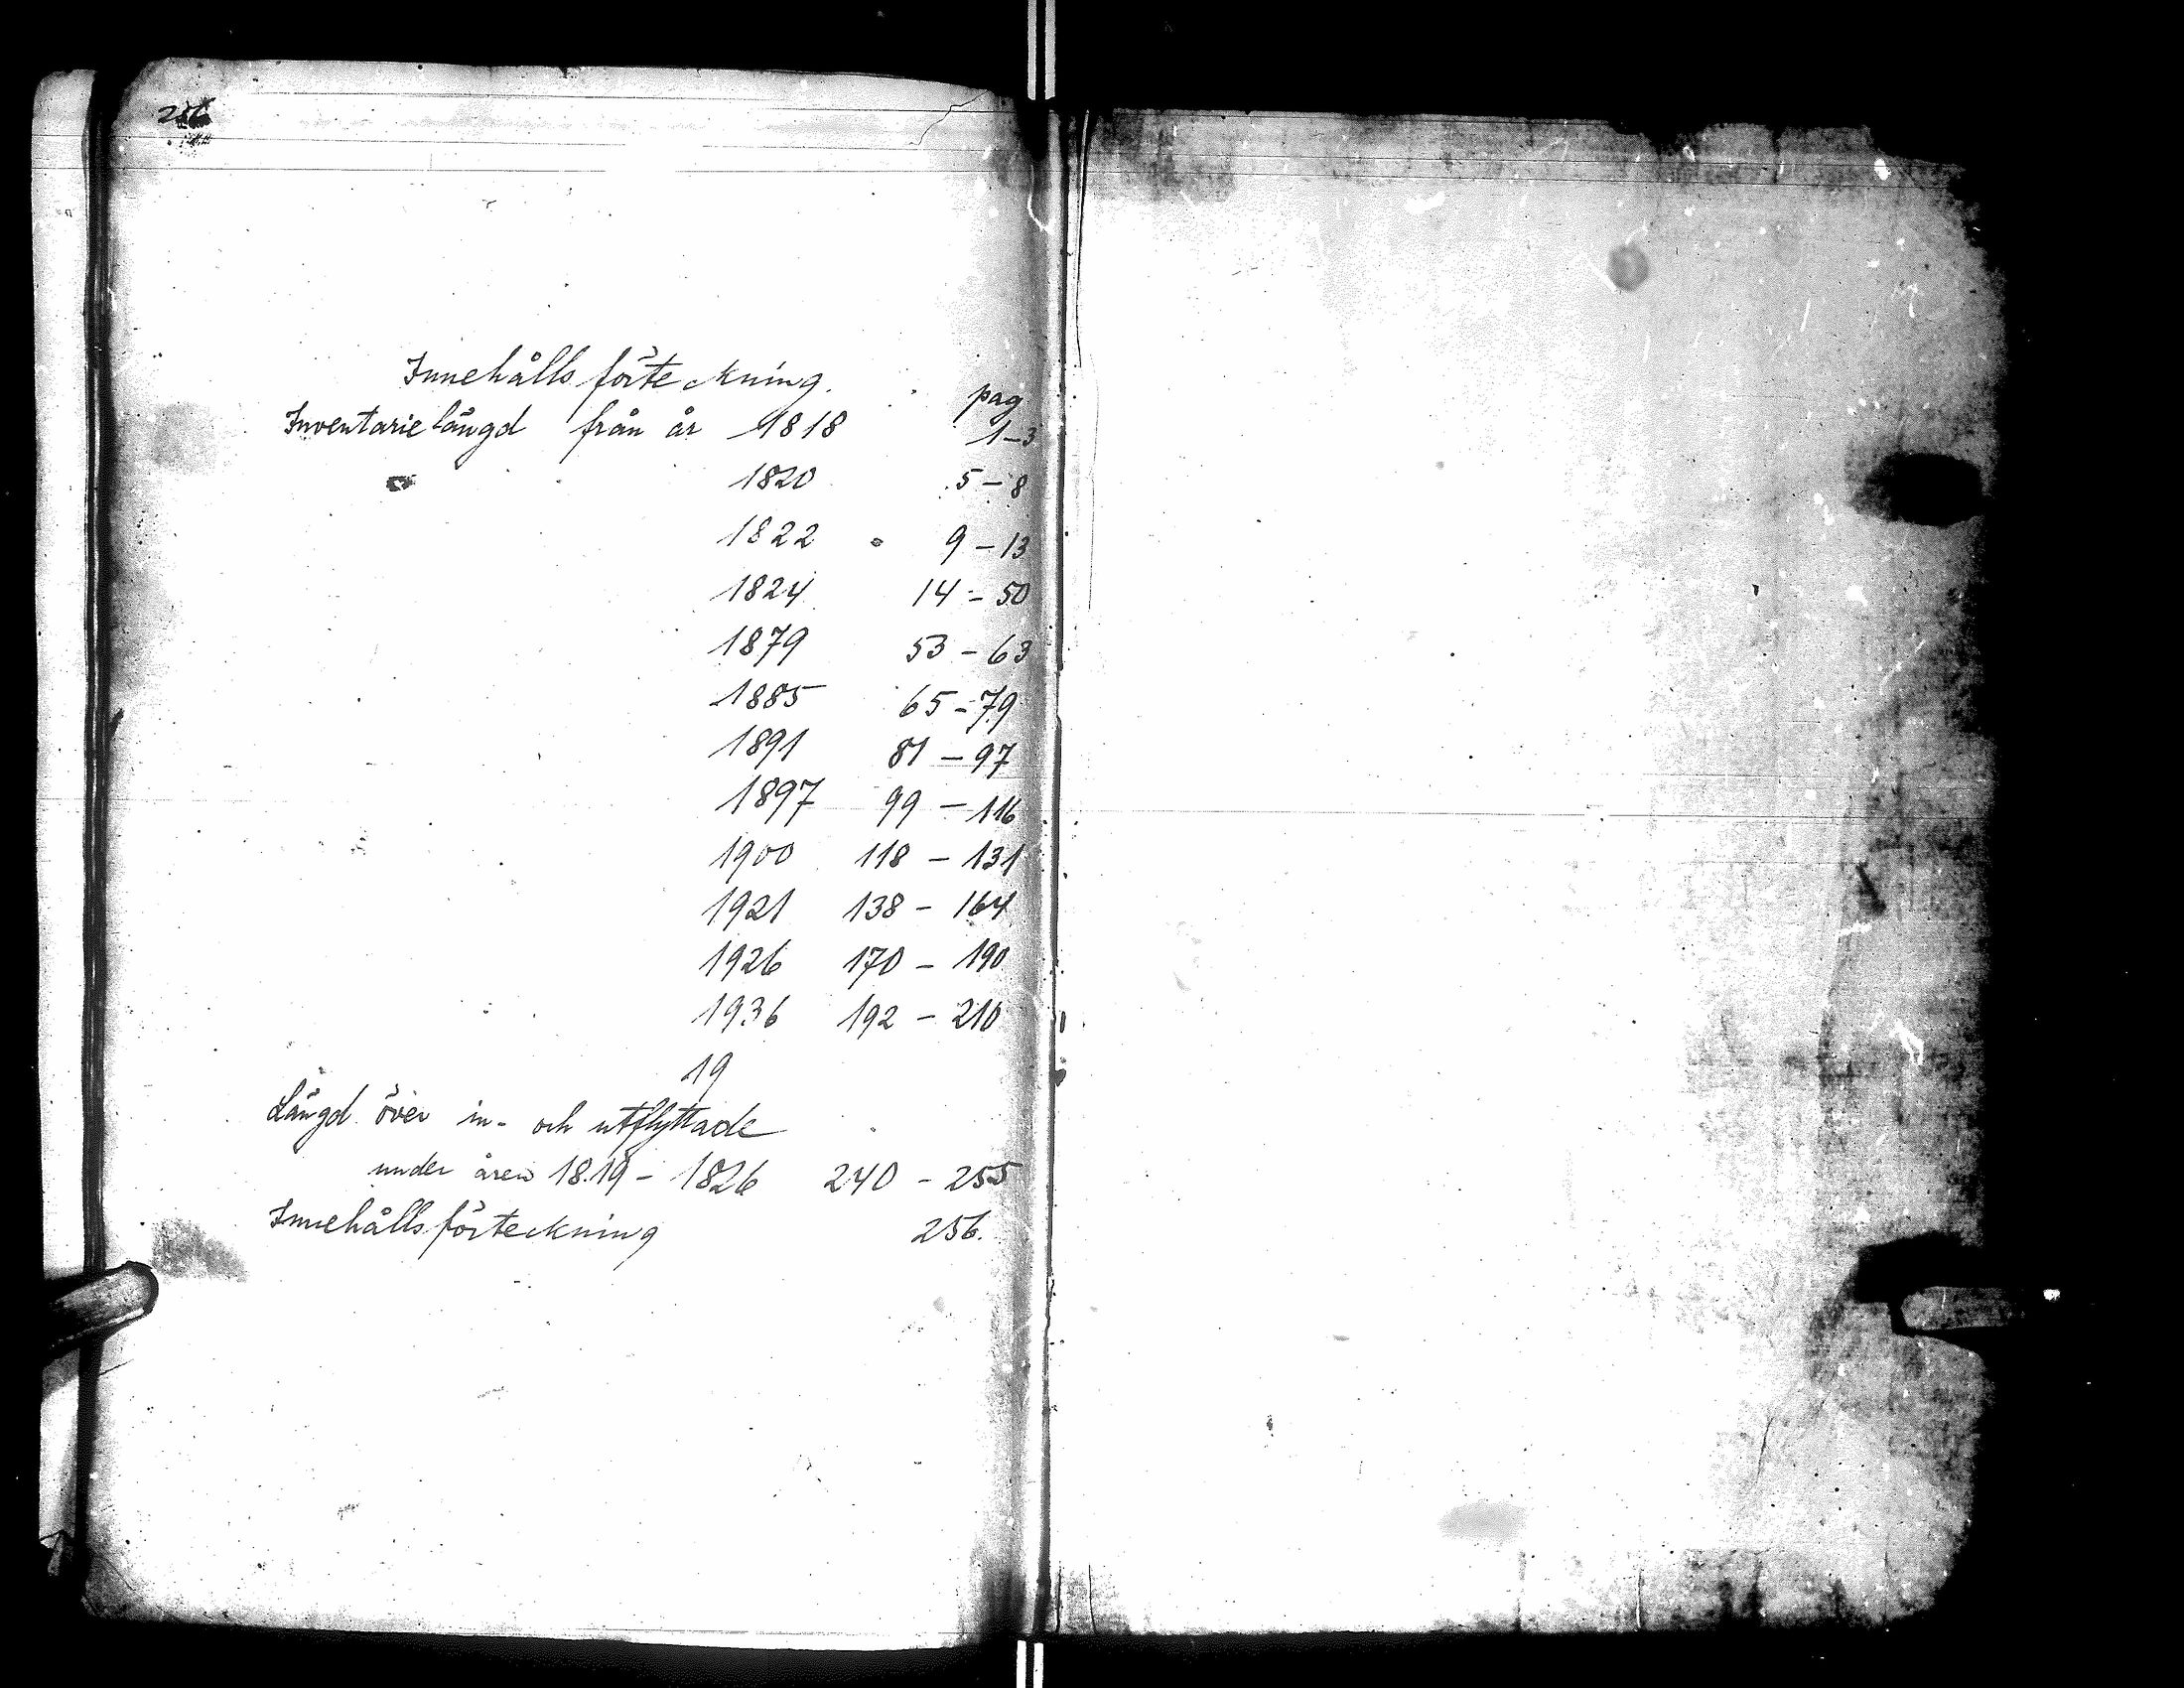 Innehållsförteckning.
pag
Inventarielängd från år 1818 1-3
1820 5-8
1822 9-13
1824 14-50
1879 53-63
1885 65-79
1891 81-97
1897 99-116
1900 118-131
1921 138-164
1926 170-190
1936 192-210
19
Längd över in- och utflyttade
under åren 1819-1826 240-255
Innehållsförteckning 256.